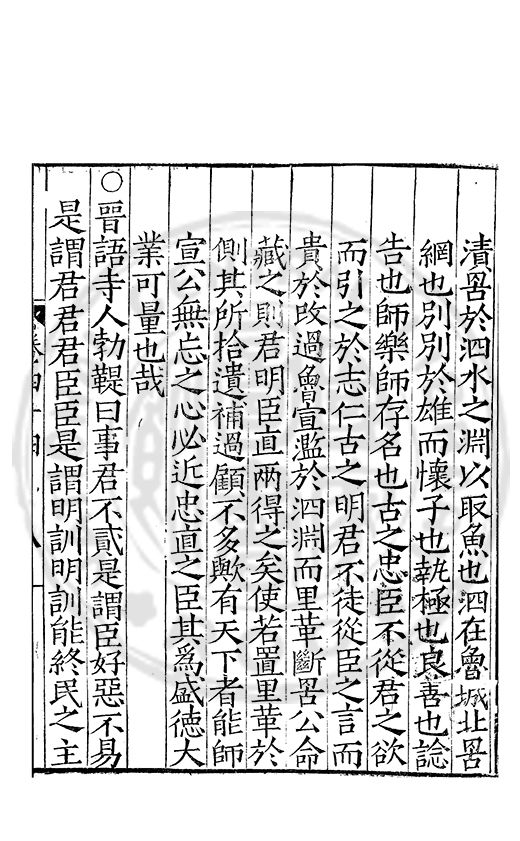 漬罟於泗水之淵以取魚也泗在魯城北罟
網也別別於雄而懷子也埶極也良善也諗
告也師樂師存名也古之忠臣不從君之欲
而引之於志仁古之明君不徒從臣之言而
貴於改過魯宣濫於泗淵而里革斷罟公命
藏之則君明臣直两得之矣使若置里革於
側其所拾遺補過顧不多歟有天下者能師
宣公無忘之心必近忠直之臣其爲盛德大
業可量也哉
○晉語寺人勃鞮曰事君不貳是謂臣好惡不易
是謂君君君臣臣是謂明訓明訓能終民之主
卷四十四
八